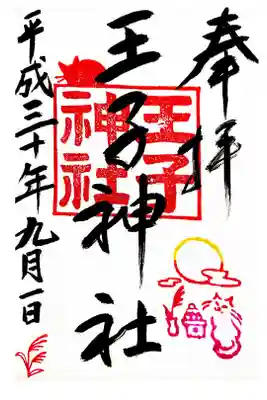 奉拝
王子神社
王子
神社
平成三十年九月一日